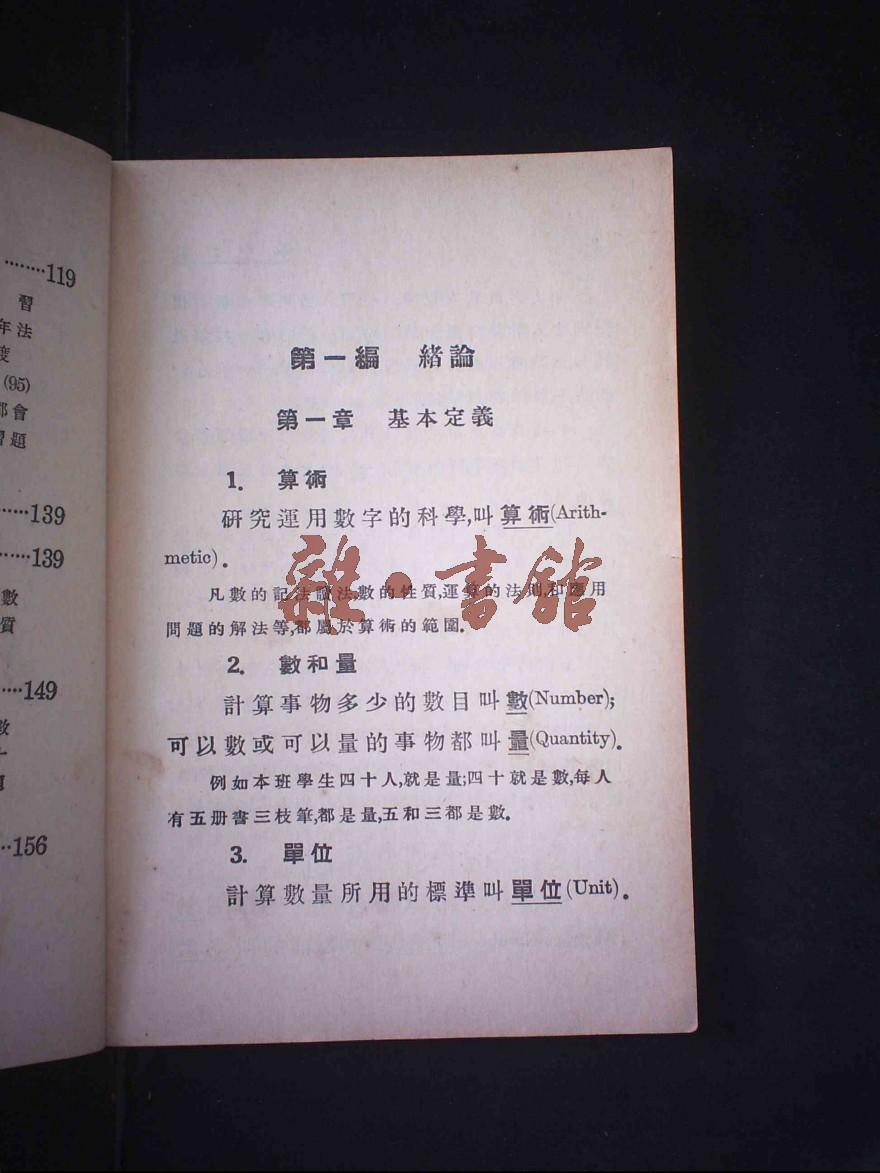 ………119
習
年法
度
(95)
都會
習題
……139
……139
數
質
……149
數
……156
第一編 緒論
第一章 基本定義
1. 算術
研究運用數字的科學,叫算術(Arith-
metic)。
凡數的記法讀法數的性質,運算的法則,和應用
問題的解法等,都屬於算術的範圍。
2. 數和量
計算事物多少的數目叫數(Number);
可以數或可以量的事物都叫量(Quantity)。
例如本班學生四十人,就是量;四十就是數,每人
有五册書三枝筆,都是量,五和三都是數。
3. 單位
計算數量所用的標準叫單位(Unit)。
雜·書館